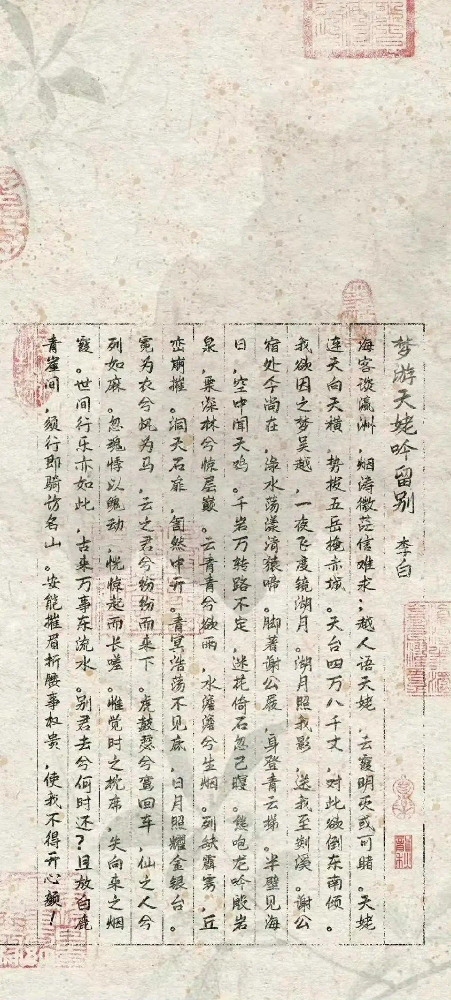 梦游天姥吟留别 李白
海客谈瀛洲,烟涛微茫信难求;越人语天姥,云霞明灭或可睹。天姥
连天向天横,势拔五岳掩赤城。天台四万八千丈,对此欲倒东南倾。
我欲因之梦吴越,一夜飞度镜湖月。湖月照我影,送我至剡溪。谢公
宿处今尚在,渌水荡漾清猿啼。脚著谢公屐,身登青云梯。半壁见海
日,空中闻天鸡。千岩万转路不定,迷花倚石忽已暝。熊咆龙吟殷岩
泉,栗深林兮惊层巅。云青青兮欲雨,水澹澹兮生烟。列缺霹雳,丘
峦崩摧。洞天石扉,訇然中开。青冥浩荡不见底,日月照耀金银台。
霓为衣兮风为马,云之君兮纷纷而来下。虎鼓瑟兮鸾回车,仙之人兮
列如麻。忽魂悸以魄动,恍惊起而长嗟。惟觉时之枕席,失向来之烟
霞。世间行乐亦如此,古来万事东流水。别君去兮何时还?且放白鹿
青崖间,须行即骑访名山。安能摧眉折腰事权贵,使我不得开心颜!